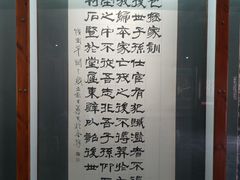 包拯家訓
後世子孫仕宦有犯贓濫者不得
放歸本家亡歿之後不得葬於大
塋之中不從吾志非吾子孫仰珙
刊石豎於堂屋東壁以詔後世